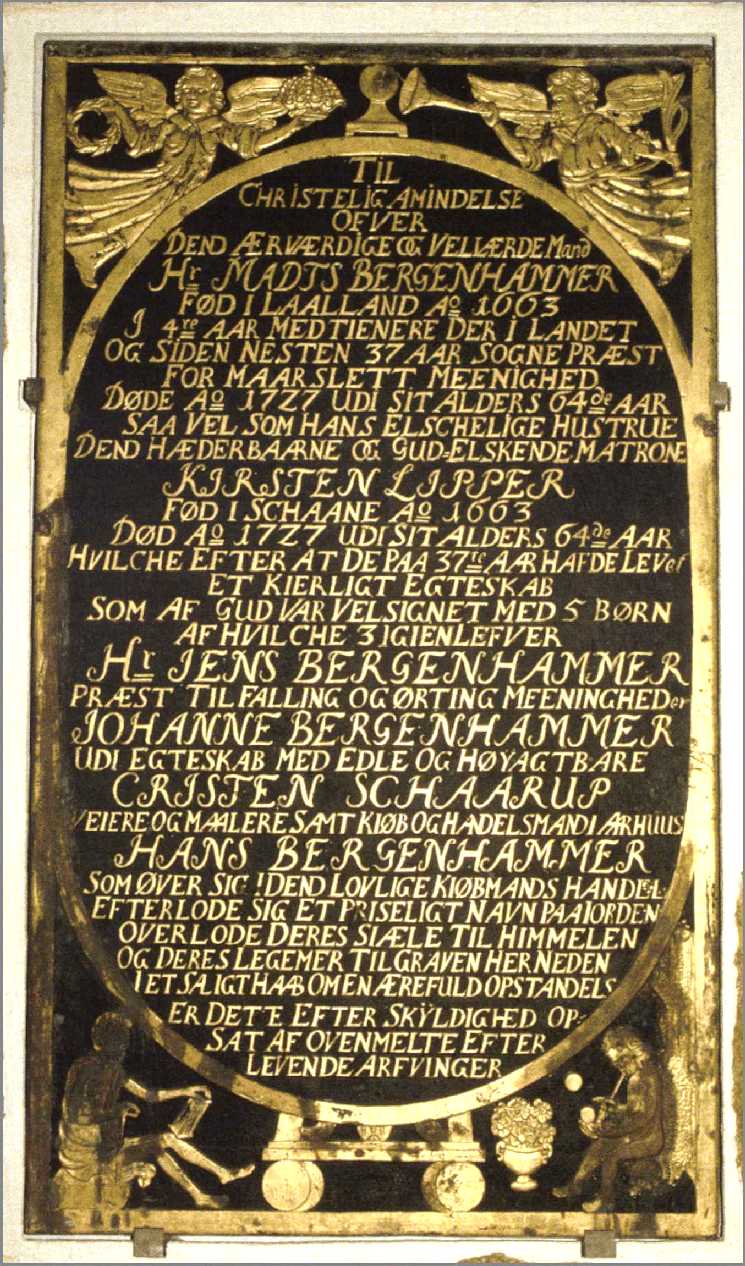 TIL
CHRISTELIG AMINDELSE
OFVER
DEND ÆRVÆRDIGE OG VELLÆRDE Mand
Hr MADTS BERGENHAMMER
FØD I LAALLAND Ao 1663
I 4re AAR MEDTIENERE DER I LANDET
OG SIDEN NESTEN 37 AAR SOGNE PRÆST
FOR MAARSLETT MEENIGHED
DØDE Ao 1727 UDI SIT ALDERS 64de AAR
SAA VEL SOM HANS ELSCHELIGE HUSTRUE
DEND HÆDERBAARNE OG GUD=ELSKENDE MATRONE
KIRSTEN LIPPER
FØD I SCHAANE Ao 1663
DØD Ao 1727 UDI SIT ALDERS 64de AAR
HVILCHE EFTER AT DE PAA 37re AAR HAFDE LEVet
ET KIERLIGT EGTESKAB
SOM AF GUD VAR VELSIGNET MED 5 BØRN
AF HVILCHE 3 IGIENLEFVER
Hr JENS BERGENHAMMER
PRÆST TIL FALLING OG ØRTING MEENINGHEDer
JOHANNE BERGENHAMMER
UDI EGTESKAB MED EDLE OG HØYAGTBARE
CRISTEN SCHAARUP
VEIERE OG MAALERE SAMT KIØB OG HANDELSMAND I AARHUUS
HANS BERGENHAMMER
SOM ØVER SIG I DEND LOVLIGE KIØBMANDS HANDEL
EFTERLODE SIG ET PRISELIGT NAVN PAA IORDEN
OVERLODE DERES SIÆLE TIL HIMMELEN
OG DERES LEGEMER TIL GRAVEN HER NEDEN
I ET SALIGT HAAB OM EN ÆREFULD OPSTANDELS
ER DETTE EFTER SKŸLDIGHED OP=
SAT AF OVENMELTE EFTER
LEVENDE ARFVINGER